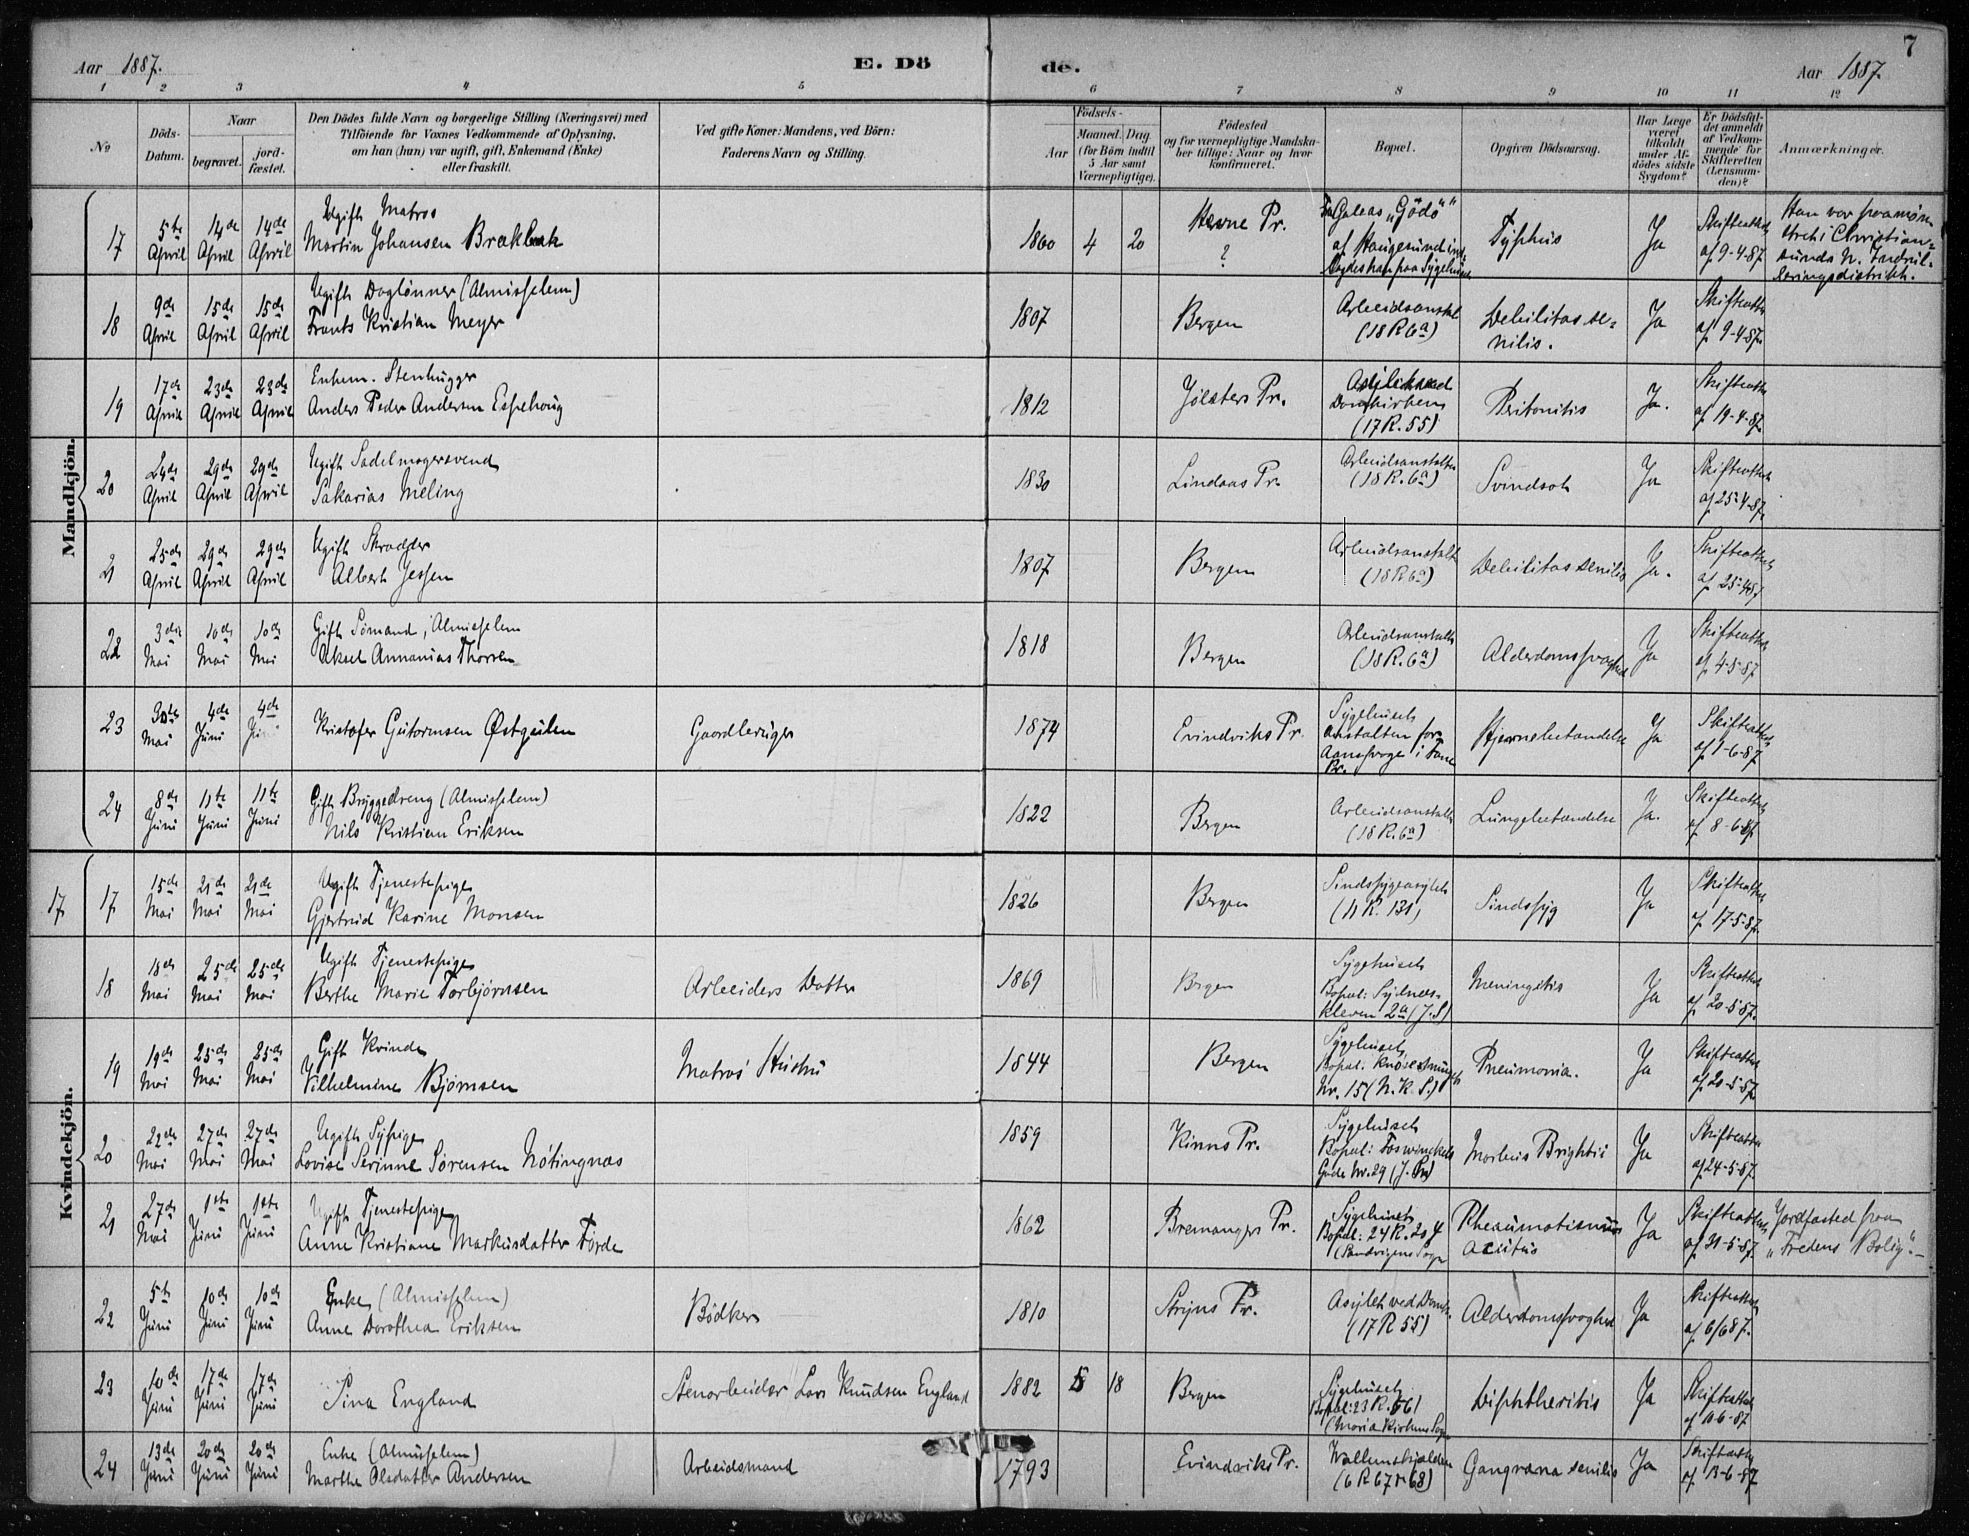 7
Aar 1887.
E. Dö
de.
Aar 1887.
1 2 3 4 5 6 7 8 9 10 11 12
No
Döds-Datum.
Naar
begravet.
jordfæstet.
Den Dödes fulde Navn og borgerlige Stilling (Næringsvei) med
Tilföiende for Voxnes Vedkommende af Oplysning,
om han (hun) var ugift, gift, Enkemand (Enke)
eller fraskilt.
Ved gifte Koner: Mandens, ved Börn:
Faderens Navn og Stilling.
Födsels-
Aar
Maaned. Dag.
(for Börn indtil
5 Aar samt
Værnepligtige).
Födested
og for værnepligtige Mandskaber tillige: Naar og hvor
konfirmeret.
Bopæl.
Opgiven Dödsaarsag.
Har Læge
været
tilkaldt
under Afdödes sidste
Sygdom?
Er Dödsfaldet anmeldt
af Vedkommende for
Skifteretten
(Lensmanden)?
Anmærkninger.
Mandkjön.
17 5te April 14de April 14de April Ugift Matros
Martin Johansen Brækbak 1860 4 20 Hevne Pr. ? Galeas "Gödö" af Haugesund Typhus Ja Skifteattest af 9-4-87 Han var
18 9de April 15de April 15de April Ugift Daglønner (Almisselem)
Frants Kristian Meyer 1807 Bergen Arbeidsanstal (18 R 6a) Debilitas senilis. Ja Skifteattest af 9-4-87.
19 17de April 23de April 23de April Enkem. Stenhugger
Anders Peder Andersen Espehoug 1812 Jölsters Pr. Asylet ved Domkirken (17 R. 55) Peritonitis Ja. Skifteattest af 19-4-87.
20 24de April 29de April 29de April Ugift Sadelmagersvend
Sakarias Meling 1830 Lindaas Pr. Arbeidsanstalten (18 R. 6a) Svindsot Ja Skifteattest af 25-4-87.
21 25de April 29de April 29de April Ugift Skrædder
Albert Jessen 1807 Bergen Arbeidsanstalt (18 R 6a) Debilitas senilis Ja. Skifteattest af 25-4-87
22 3die Mai 10de Mai 10de Mai Gift Sømand, Almisselem
Aksel Annanias Thorsen 1818 Bergen Arbeidsanstalt (18 R. 6a) Alderdomssvaghed Ja Skifteattest af 4-5-87
23 30te Mai 4de Juni 4de Kristofer Gutormsen Østgulen Gaardbruger 1874 Evindviks Pr. Sygehuset Anstalten for i Fane Pr. Hjernebetændelse Ja Skifteattest af 1-6-87
24 8de Juni 11te Juni 11te Juni Gift Bryggedreng (Almisselem)
Nils Kristian Eriksen 1822 Bergen Arbeidsanstalt (18 R. 6a) Lungebetændelse Ja. Skifteattest af 8-6-87.
Kvindekjön.
17 17 15de Mai 21de Mai 21de Mai Ugift Tjenestepige
Gjertrud Karine Monsen 1826 Bergen Sindssygeasylet (11 R. 131) Sindssyg Ja Skifteattest af 17-5-87.
18 18de Mai 25de Mai 25de Mai Ugift Tjenestepige
Berthe Marie Torbjørnsen Arbeiders Datter 1869 Bergen Sygehuset Bopæl: Sydnes-kleven 2a (J. S) Meningitis Ja Skifteattest af 20-5-87.
19 19de Mai 25de Mai 25de Mai Gift Kvinde
Vilhelmine Bjørnsen Matros' Hustru 1844 Bergen Sygehuset Bopæl: Knøsesmuget Nr. 15 (N. K. S.) Pneumonia. Ja Skifteattest af 20-5-87.
20 22de Mai 27de Mai 27de Mai Ugift Sypige
Lovise Serinne Sørensen Nötingnæs 1859 Kinns Pr. Sygehuset Bopæl: Foswinckels Gade Nr. 29 Morbus Brightii Ja Skifteattest af 24-5-87.
21 27de Mai 1ste Juni 1ste Juni Ugift Tjenestepige
Anne Kristiane Markusdatter Förde 1862 Bremangers Pr. Sygehuset Bopæl: 24 R. 204 (Sandvigens Sogn Rheumatismus acutus Ja Skifteattest af 31-5-87. Jordfæsted fra "Fredens Bolig".
22 5te Juni 10de Juni 10de Juni Enke (Almisselem)
Anne Dorothea Eriksen Bödker 1810 Stryns Pr. Asylet ved Domk. (17 R 55) Alderdomssvaghed Ja Skifteattest af 6/6 87.
23 10de Juni 17de Juni 17de Juni Sina England Stenarbeider Lars Knudsen England 1882 18 Bergen Sygehuset Bopæl: 23 R. (Mariakirkens Sogn Diphtheritis Ja Skifteattest af 11-6-87
24 13de Juni 20de Juni 20de Juni Enke (Almisselem)
Marthe Olsdatter Andersen Arbeidsmand 1793 Evindviks Pr. (6 R 67 68) Gangræna senilis Ja Skifteattest af 13-6-87